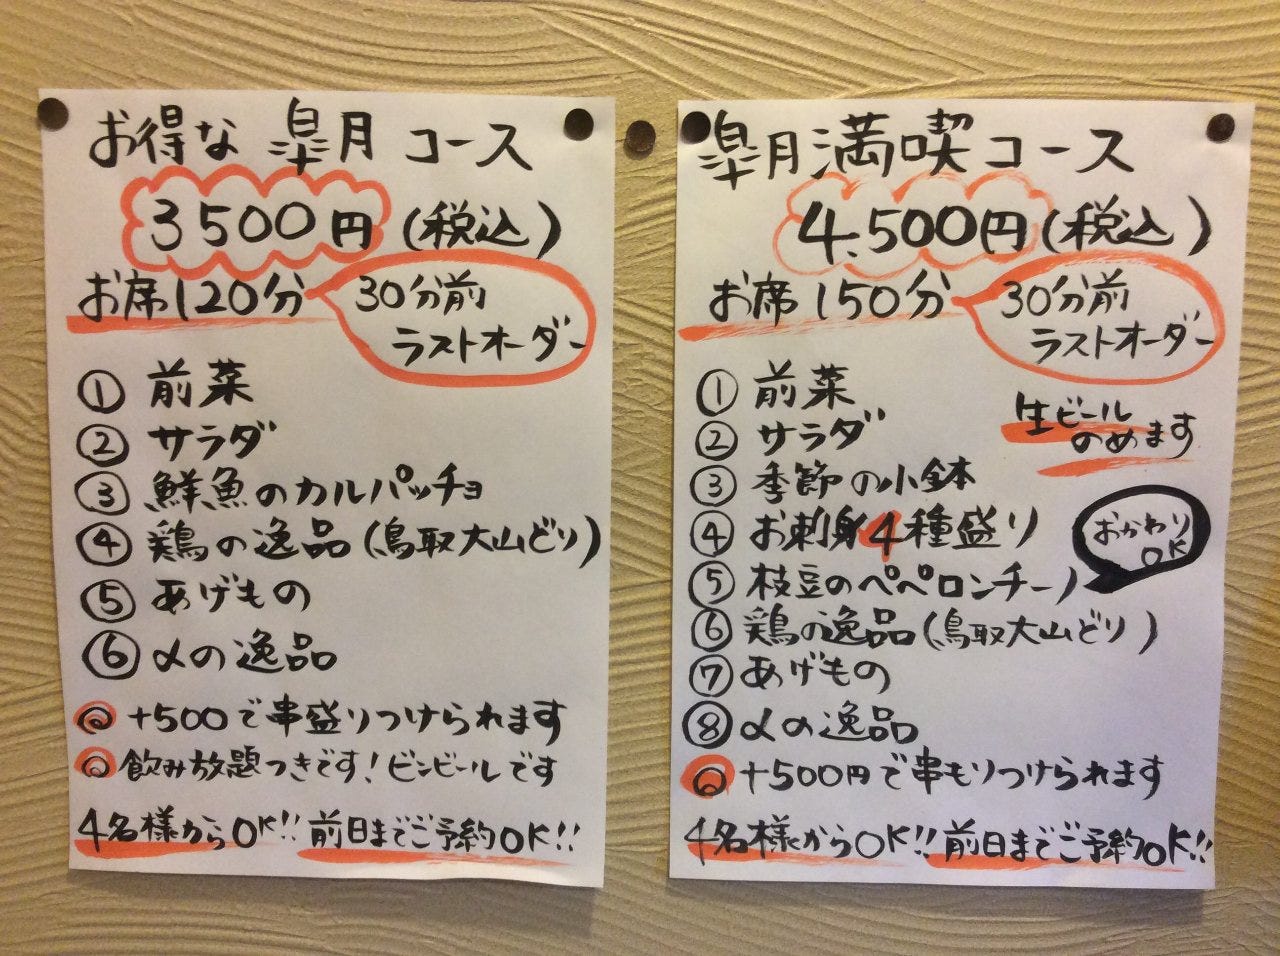 お得な 皐月 コース
3500円(税込)
お席120分
30分前
ラストオーダー
① 前菜
② サラダ
③ 鮮魚のカルパッチョ
④ 鶏の逸品(鳥取大山どり)
⑤ あげもの
⑥ 〆の逸品
◎ +500で串盛りつけられます
◎ 飲み放題つきです!ビンビールです
4名様からOK!! 前日までご予約OK!!
皐月満喫コース
4,500円(税込)
お席150分
30分前
ラストオーダー
① 前菜
② サラダ
生ビール
のめます
③ 季節の小鉢
④ お刺身4種盛り
おかわり
OK
⑤ 枝豆のペペロンチーノ
⑥ 鶏の逸品(鳥取大山どり)
⑦ あげもの
⑧ 〆の逸品
◎ +500円で串もりつけられます
4名様からOK!! 前日までご予約OK!!